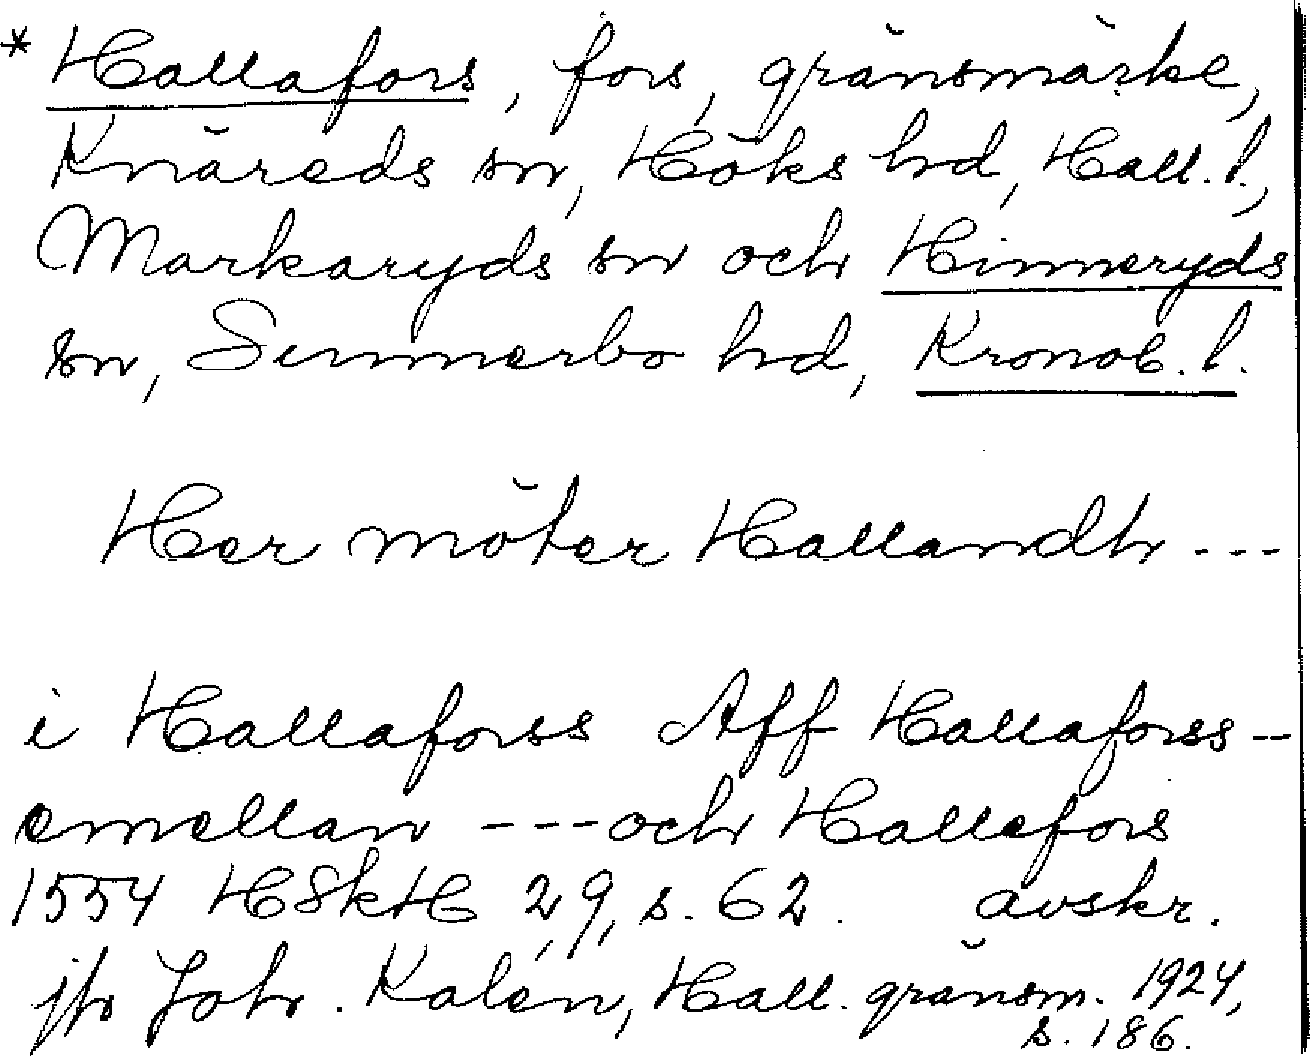 * Hallafors, fors, gränsmärke,
Knäreds sn, Höks hd, Hall. l.,
Markaryds sn och Hinneryds
sn, Sunnerbo hd, Kronob. l.
Her möter Hallandh ---
i Hallaforss Aff Hallaforss --
emellan --- och Hallefors
1554 HSkH 2,9, s. 62. avskr.
jfr Joh. Kalén, Hall. gränsm. 1924,
s. 186.